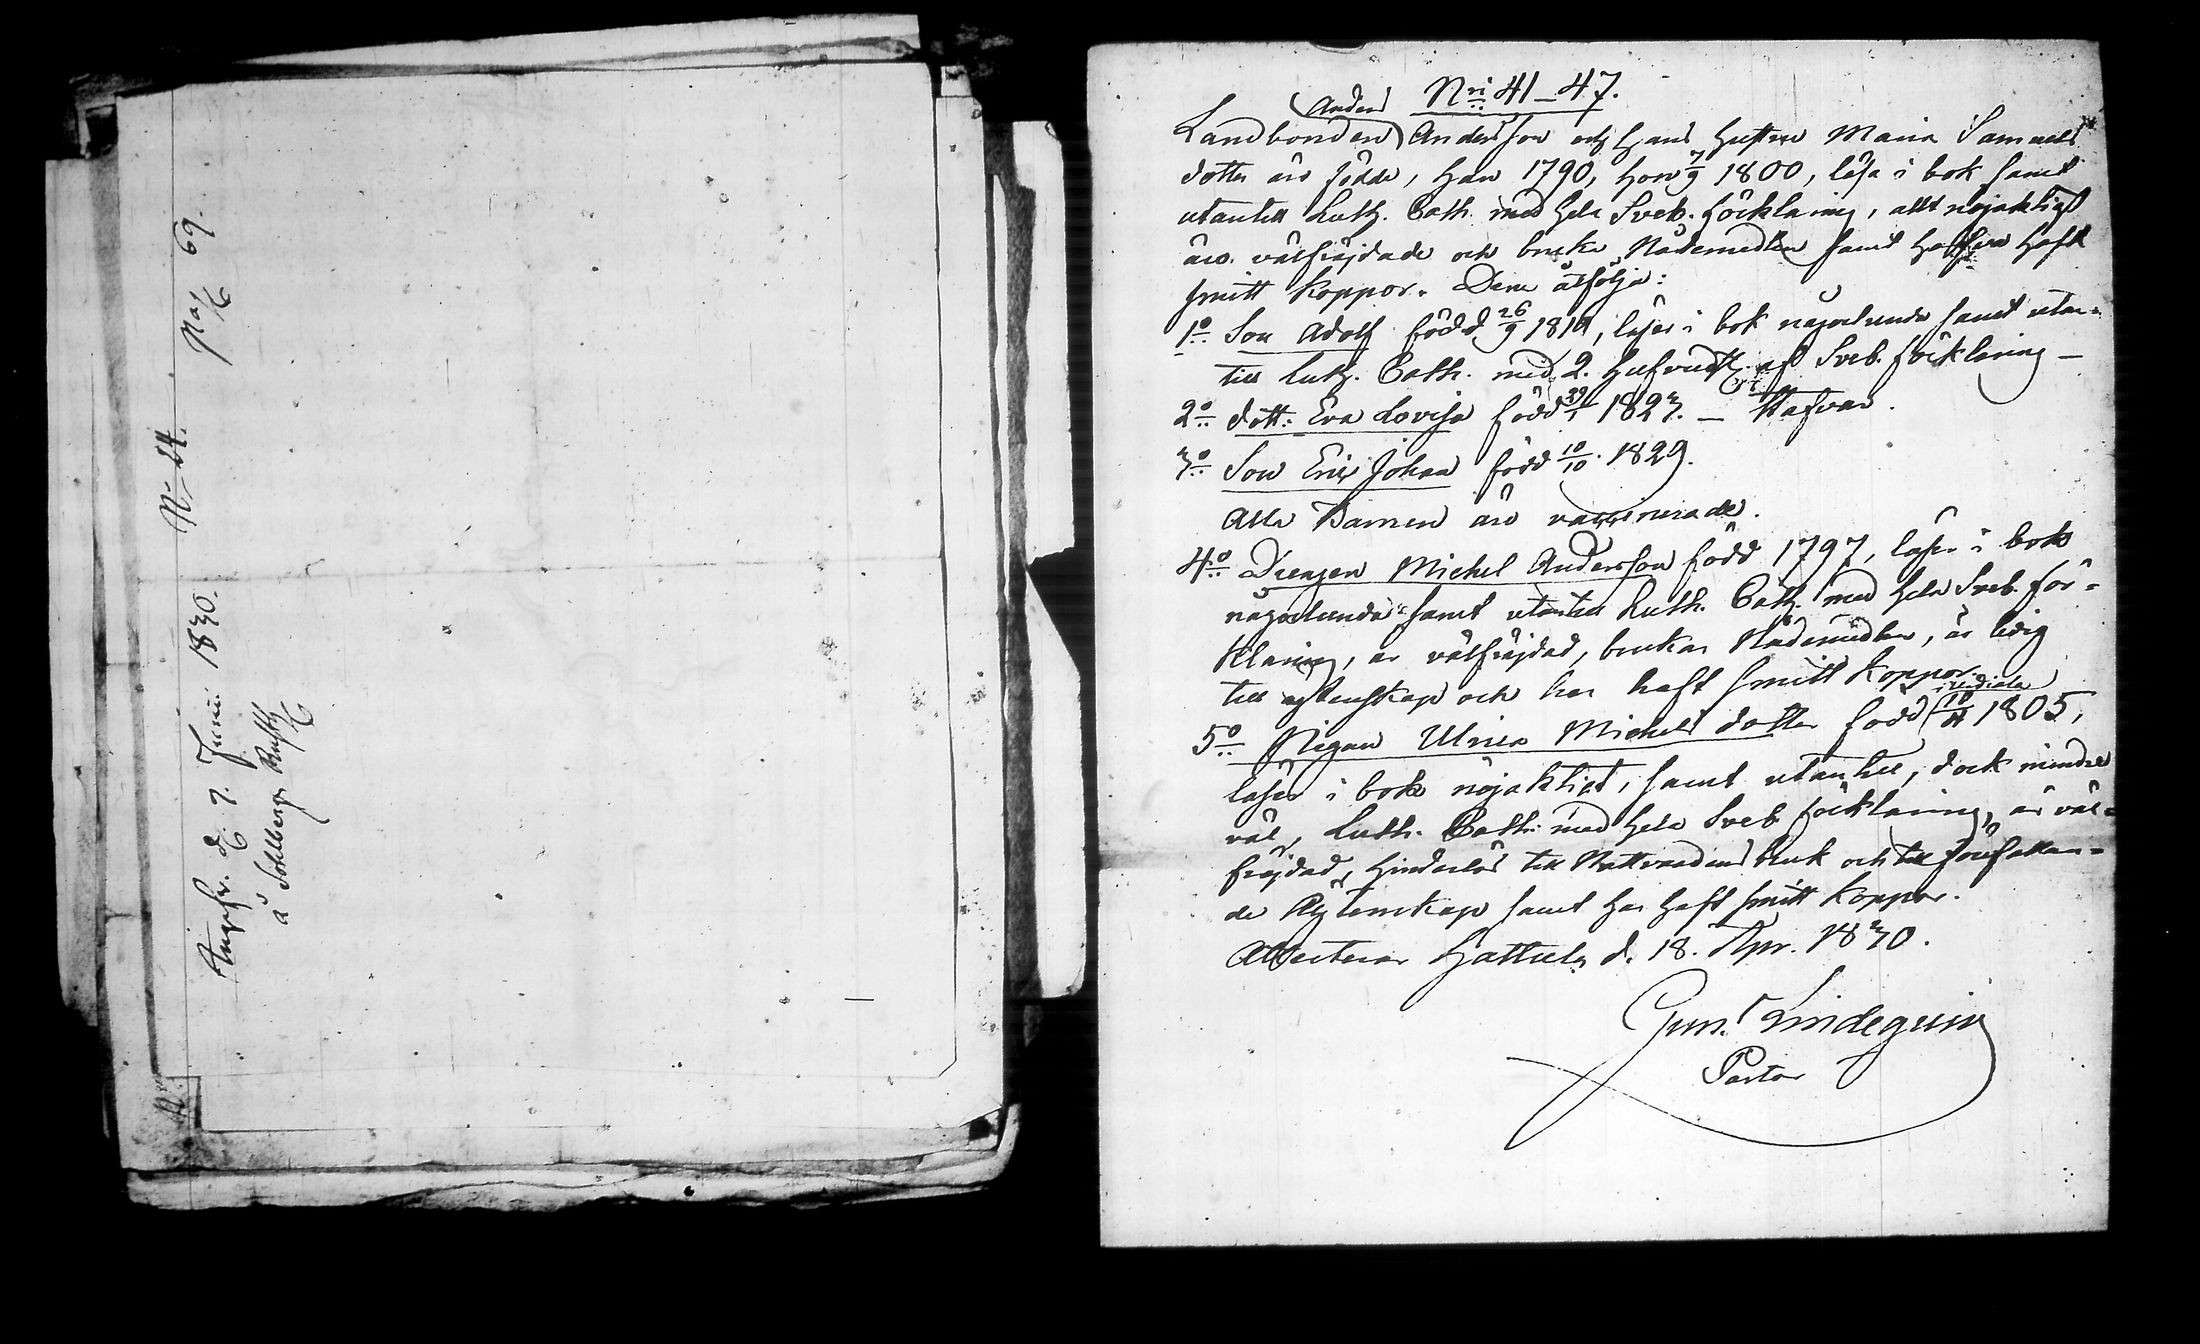 N° 24.
Pag. 69.
Ankr. d. 7. Junii 1830.
å Sohlberga Rusth.
Nri 41–47.
Anders
Landbonden Andersson och hans hustru Maria Samuels
dotter äro födde, han 1790, hon 7/9 1800, läsa i bok samt
utantill Luth. Cath. med hela Sveb. förklaring, allt nöjaktigt
äro välfräjdade och bruka Nådemedlen samt hafva haft
smitt koppor. Dem åtfölja:
1° Son Adolf född 26/9 1819, läser i bok någorlunda samt utan=
till Luth. Cath. med 2. hufvudst. af Sveb. förklaring —
2° dott: Eva Lovisa född 29/1 1823. — Stafvar.
3° Son Eric Johan född 10/10 1829.
Alla Barnen äro vaccinerade.
4° Drengen Michel Andersson född 1797, läser i bok
någorlunda samt utantill Luth. Cath. med hela Sveb. för=
klaring, är välfräjdad, brukar Nådemedlen, är ledig
till ägtenskap och har haft smitt koppor.
5° Pigan Ulrica Michels dotter född 18/4 1805,
läser i bok nöjaktigt, samt utantill, dock mindre
väl, Luth. Cath. med hela Sveb förklaring, är väl=
fräjdad, hinderlös till Nattvardens bruk och till förefallan=
de Ägtenskap samt har haft smitt koppor.
Attesterar Hattula d. 18. Apr. 1830.
Gust. Lindegrén
Pastor